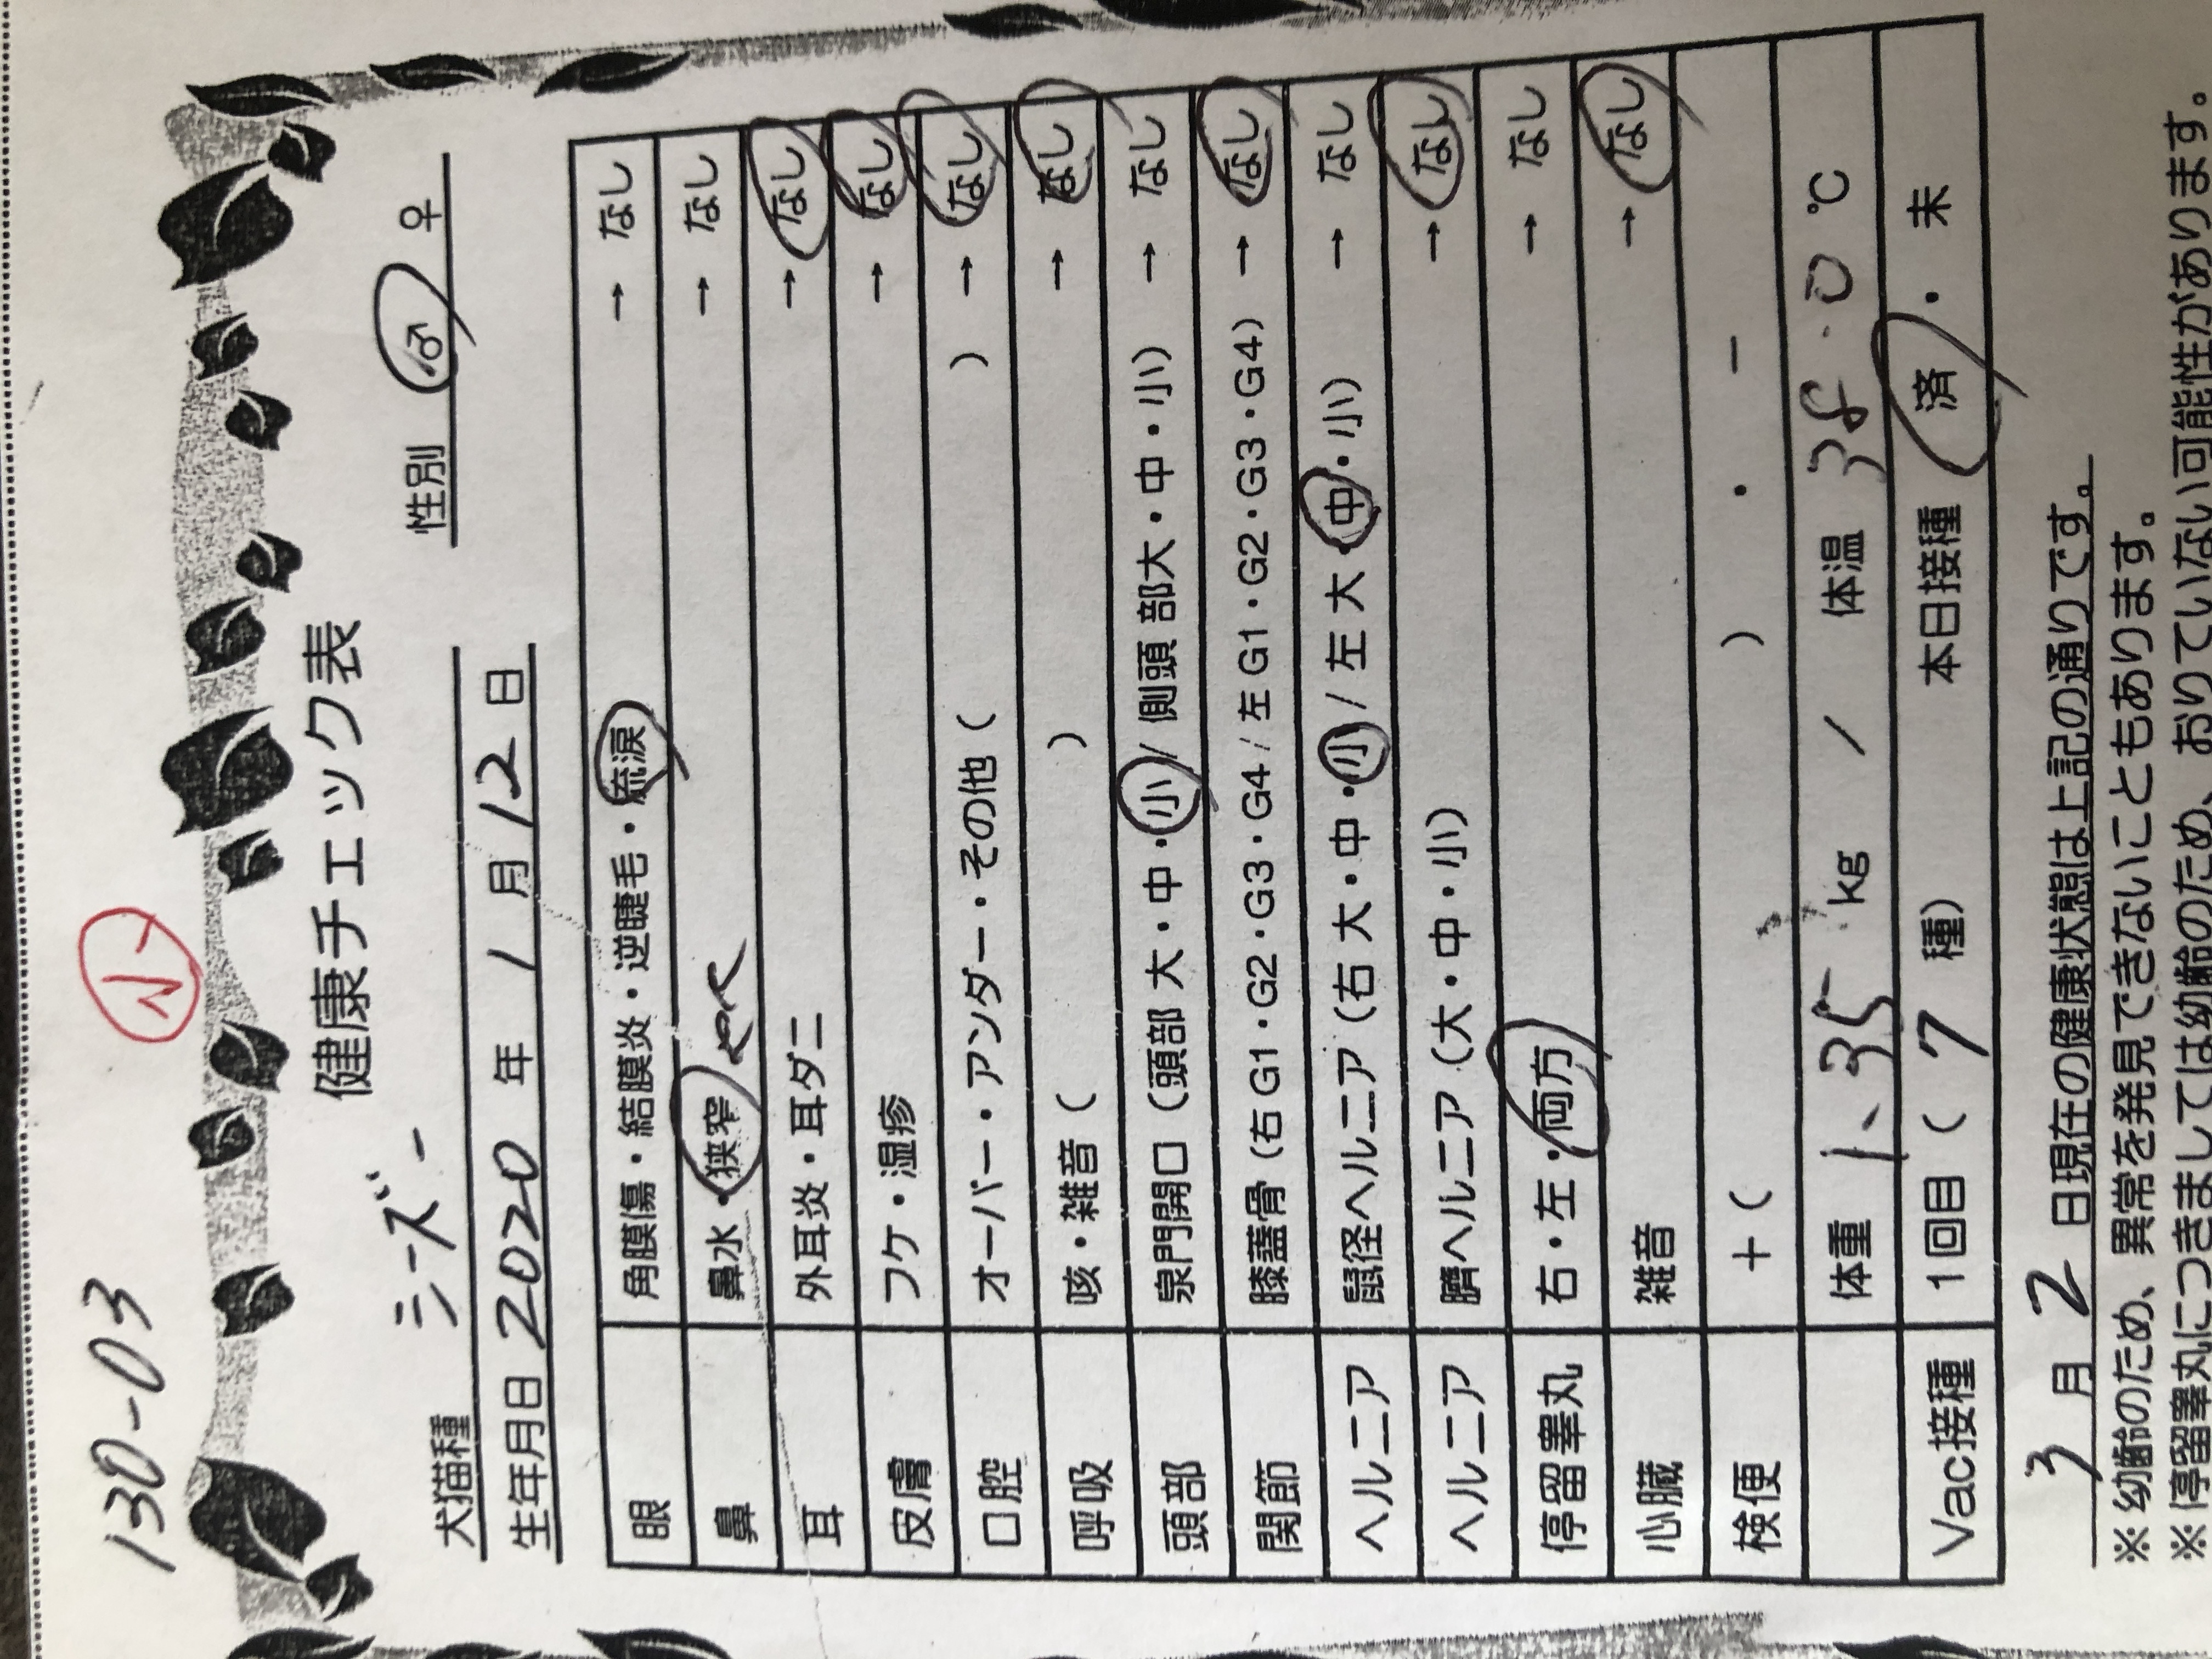 130-03
小
健康チェック表
犬猫種 シーズー 性別 ♂ ♀
生年月日 2020 年 1 月 12 日
眼 角膜傷・結膜炎・逆睫毛・流涙 → なし
鼻 鼻水・狭窄 → なし
耳 外耳炎・耳ダニ → なし
皮膚 フケ・湿疹 → なし
口腔 オーバー・アンダー・その他 ( ) → なし
呼吸 咳・雑音 ( ) → なし
頭部 泉門開口 (頭部 大・中・小 / 側頭部大・中・小) → なし
関節 膝蓋骨 (右 G1・G2・G3・G4 / 左 G1・G2・G3・G4) → なし
ヘルニア 鼠径ヘルニア (右 大・中・小 / 左 大・中・小) → なし
ヘルニア 臍ヘルニア (大・中・小) → なし
停留睾丸 右・左・両方 → なし
心臓 雑音 → なし
検便 + ( ) ・ −
体重 1.35 kg / 体温 38.0 ℃
Vac接種 1回目 ( 7 種) 本日接種 済 ・ 未
3 月 2 日現在の健康状態は上記の通りです。
※幼齢のため、異常を発見できないこともあります。
※停留睾丸につきましては幼齢のため、おりていない可能性があります。